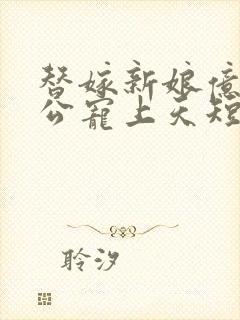 替嫁新娘億
公寵上天短
聆汐